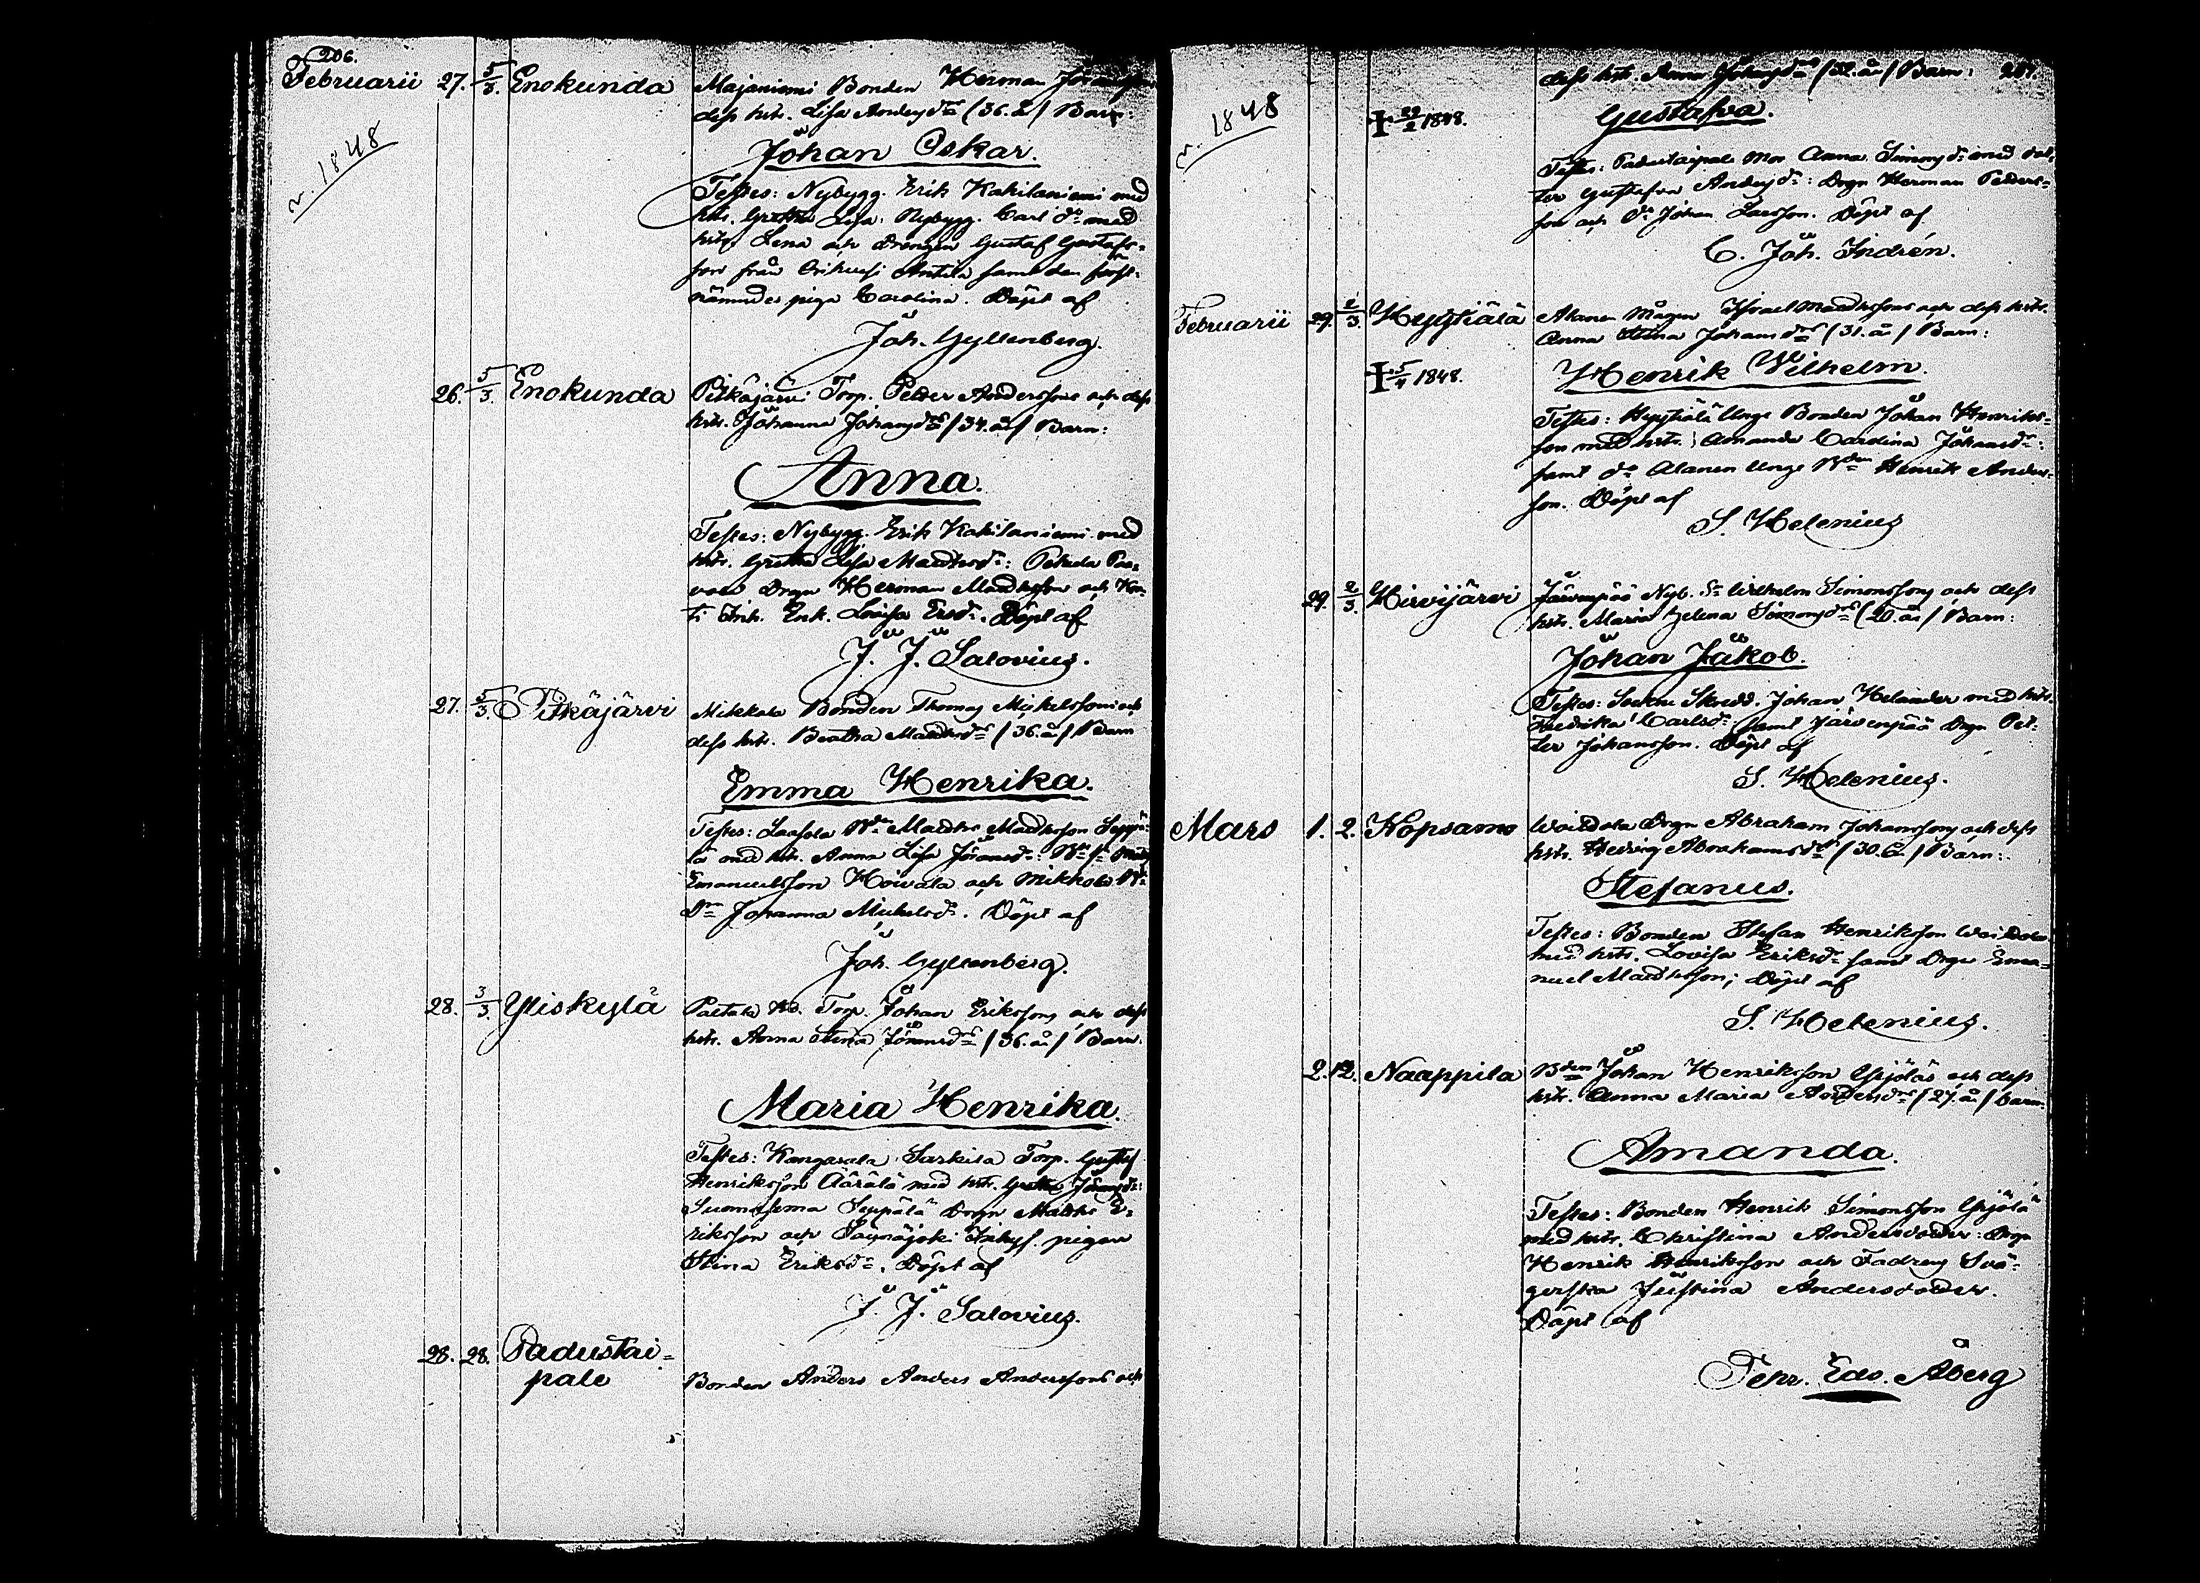 206.
Februarii 27. 5/3. Enokunda Majaniemi Bonden Herman
dess hst. Lisa Andersdr (36. å) Barn:
v. 1848
Johan Oskar.
Testes: Nybygg. Erik Kakilaniemi med
hst. Gretha Lisa: Nybygg. Carl do med
hst. Lena och Drengen Gustaf Gustafs-
son från Orihvesi Anttila samt den först-
nämndes piga Carolina. Döpt af
Joh. Gyllenberg.
26. 5/3. Enokunda Pitkäjärvi Torp. Petter Anderssons och dess
hst. Johanna Johansdr (34. år) Barn:
Anna.
Testes: Nybygg. Erik Kakilaniemi med
hst. Gretha Lisa Mattsdr: Pekola Paa-
voo Drgn Herman Mattsson och
Enk. Lovisa Ersdr. Döpt af
J. J. Salovius.
27. 5/3. Pitkäjärvi Mikkola Bonden Thomas Mickelssons och
dess hst. Beatha Mattsdr (36. år) Barn
Emma Henrika.
Testes: Laasola Matths Mattsson Seppä-
lä med hst. Anna Lisa Göransdr:
Emanuelsson Hoivala och Mikkola
Johanna Mickelsdr. Döpt af
Joh. Gyllenberg.
28. 3/3. Yliskylä Torp. Johan Erikssons och dess
hst. Anna Stina Göransdr (36. år) Barn.
Maria Henrika.
Testes: Kangasala Sarkila Torp. Gustaf
Henriksson Äärälä med hst. Gretha
Suomasema Seppälä Drgn Matths E-
riksson och Inhys. pigan
Stina Eriksdr. Döpt af
J. J. Salovius.
28. 28. Padustai-
pale Bonden Anders Anders Anderssons och
dess hst. Anna Johansdr (32. år) Barn: 207.
v. 1848
† 29/2 1848.
Gustafva.
Testes: Padustaipale Mor Anna Simonsdr med dot-
ter Gustafva Andersdr: Drgn Herman Petters-
son och do Johan Larsson. Döpt af
C. Joh. Indrén.
Februarii 29. 2/3. Hyytiälä Alanen Mågen Israel Mattssons och dess hst.
Anna Stina Johansdr (31. år) Barn:
† 5/4 1848.
Henrik Wilhelm.
Testes: Hyytiälä Unge Bonden Johan Henriks-
son med hst. Amanda Carolina Johansdr:
samt do Alanen Unge Bden Henrik Anders-
son. Döpt af
S. Helenius
29. 2/3. Hirvijärvi Järvenpää Nyb. Sn Wilhelm Simonssons och dess
hst. Maria Helena Simonsdr (20. år) Barn:
Johan Jakob.
Testes: Sockne Skredd. Johan Helander med hst.
Fredrika Carlsdr samt Järvenpää Drgn Pet-
ter Johansson. Döpt af
S. Helenius.
Mars 1. 2. Kopsamo Drgn Abraham Johanssons och dess
hst. Hedvig Abrahamsdr (30. år) Barn:
Stefanus.
Testes: Bonden Stefan Henriksson
med hst. Lovisa Eriksdr samt Drgn Ema-
nuel Mattsson; Döpt af
S. Helenius.
2. 12. Naappila Bden Johan Henriksson Yrjölä och dess
hst. Anna Maria Andersdr (27. år) barn:
Amanda.
Testes: Bonden Henrik Simonsson Yrjölä
med hst. Christina Andersdoder: Drgn
Henrik Henriksson och Fadrens Svä-
gerska Justina Andersdoder.
Döpt af
Fepr. Edv. Åberg